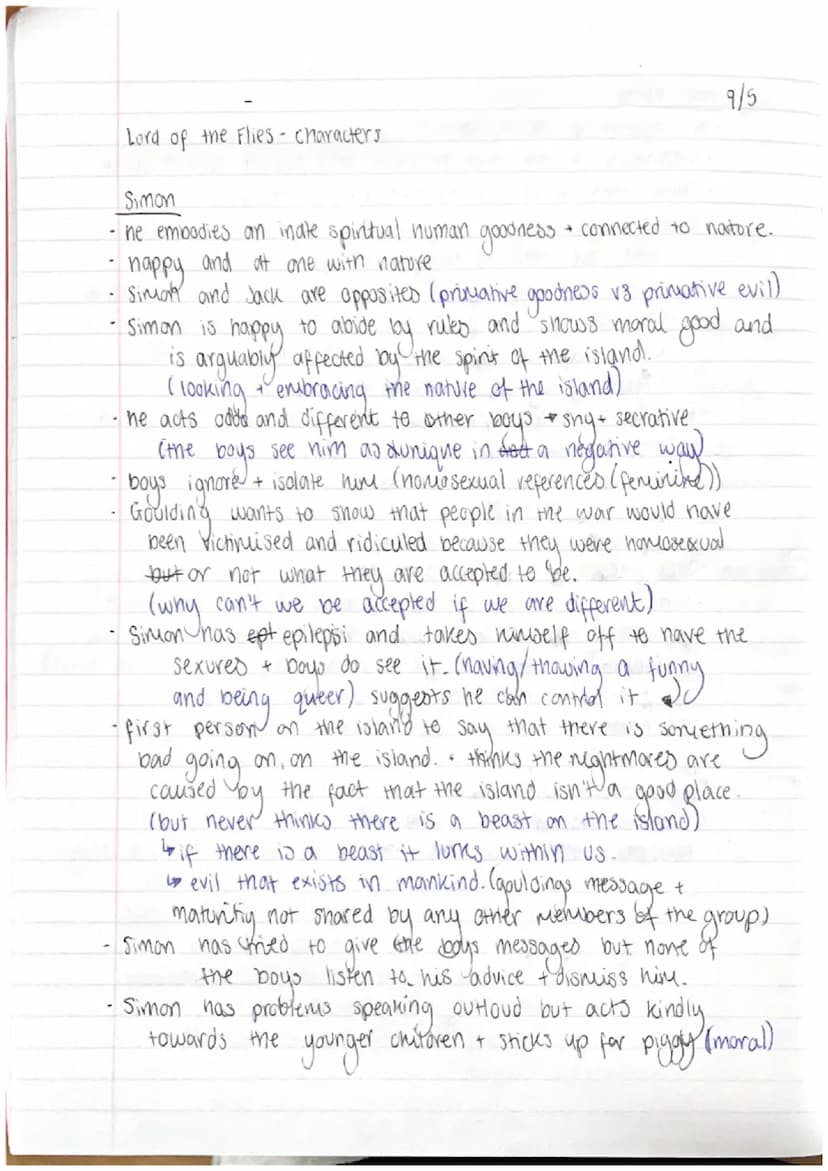 9/5
Lord of the Flies - characters
Simon
- he embodies an inate spiritual human goodness + connected to nature.
- happy and at one with nature
- Simon and Jack are opposites (primative goodness vs primative evil)
- Simon is happy to abide by rules and shows moral good and
is arguably affected by the spirit of the island.
(looking + embracing the nature of the island)
- he acts odd and different to other boys + shy + secrative
(the boys see him as unique in a negative way)
- boys ignore + isolate him (homosexual references (feminine))
- Goulding wants to show that people in the war would have
been victimised and ridiculed because they were homosexual
but or not what they are accepted to be.
(why can't we be accepted if we are different)
- Simon has ept epilepsi and takes himself off to have the
sexures + boys do see it. (having/thowing a funny
and being queer) suggests he can control it
- first person on the island to say that there is something
bad going on, on the island. • thinks the nightmares are
caused by the fact that the island isn't a good place.
(but never thinks there is a beast on the island)
↳ if there is a beast it lurks within us.
↳ evil that exists in mankind. (gouldings message +
maturitiy not shared by any other members of the group)
- Simon has tried to give the boys messages but none of
the boys listen to his advice + dismiss him.
- Simon has problems speaking outloud but acts kindly
towards the younger children + sticks up for piggy (moral)